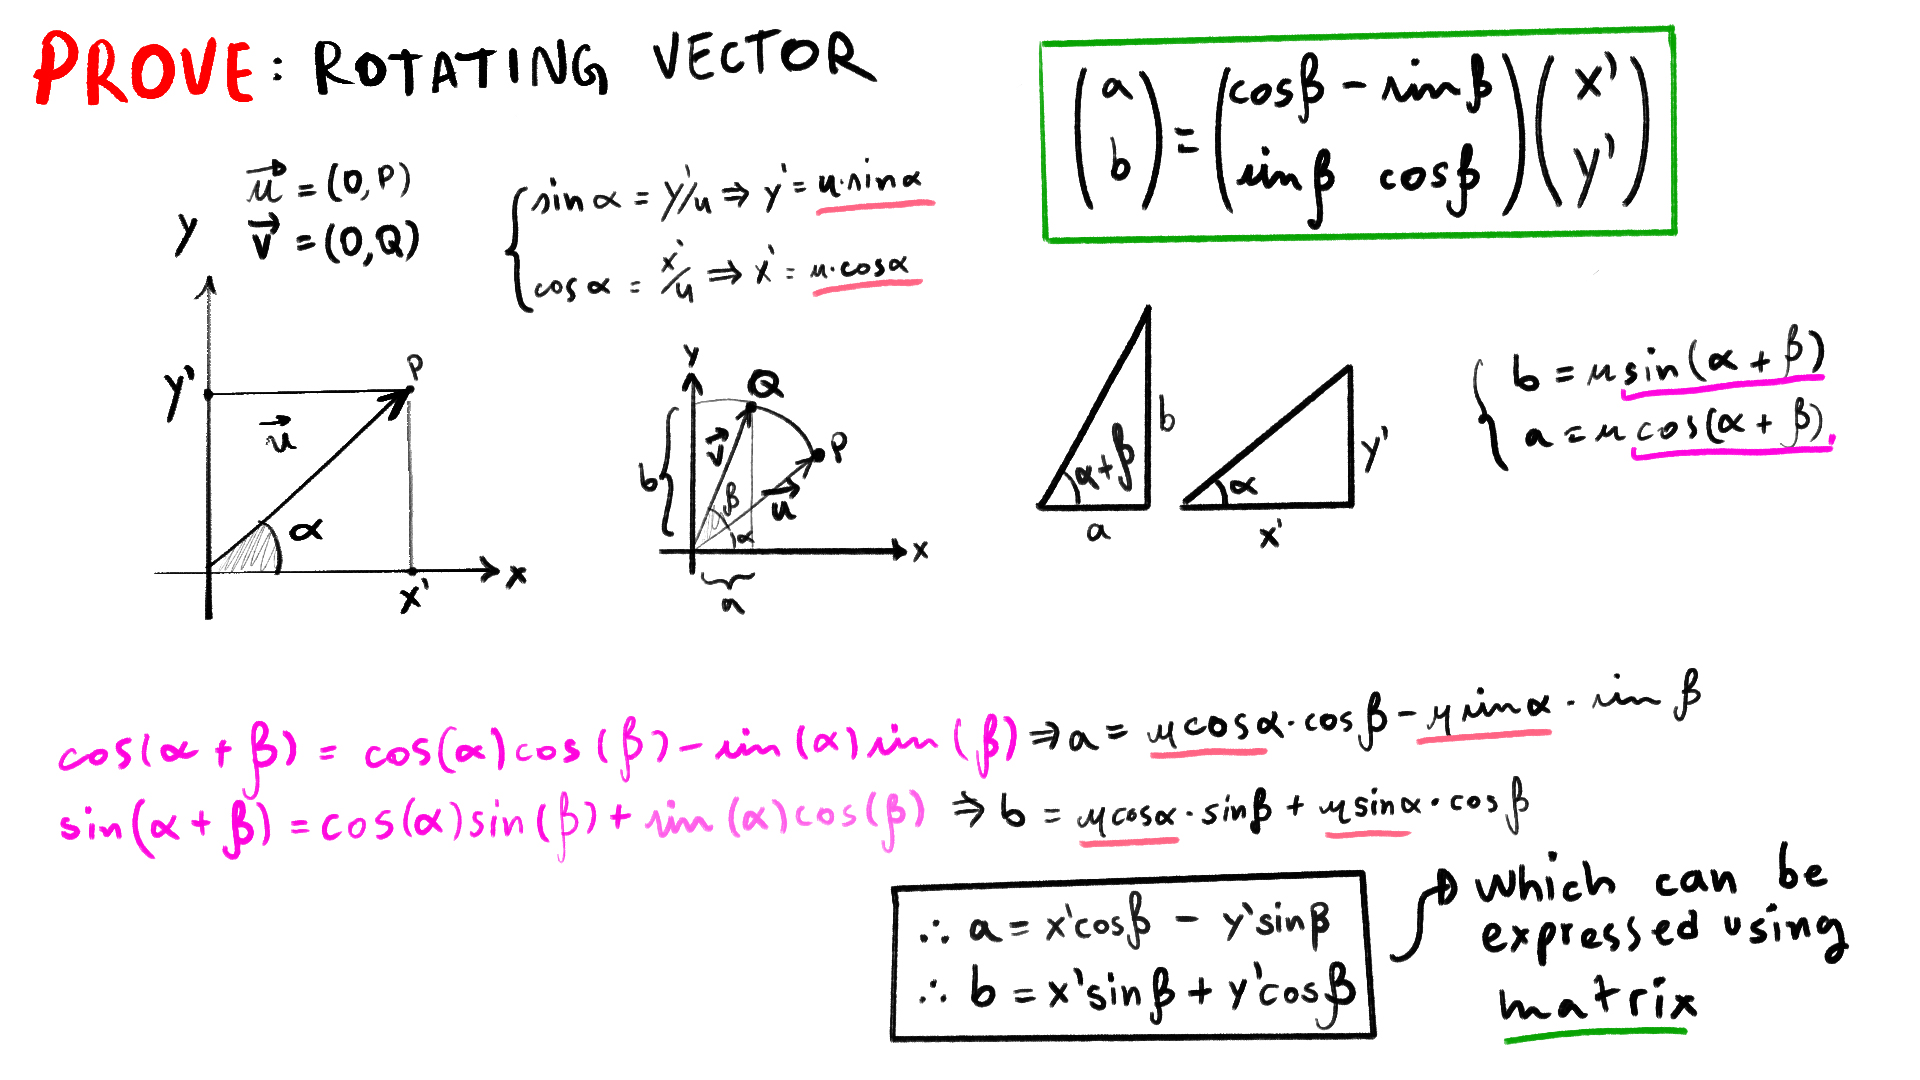 PROVE: ROTATING VECTOR
(a b) = (cosβ - sinβ sinβ cosβ) (x' y')
u⃗ = (O,P)
v⃗ = (O,Q)
sin α = y'/u ⇒ y' = u·sinα
cos α = x'/u ⇒ x' = u·cosα
y
y'
P
u⃗
α
x'
x
y
Q
P
b
v⃗
β
u⃗
α
x
a
α+β
b
a
α
y'
x'
b = u sin(α + β)
a = u cos(α + β).
cos(α + β) = cos(α) cos(β) - sin(α) sin(β) ⇒ a = u cosα · cosβ - u sinα · sin β
sin(α + β) = cos(α) sin(β) + sin(α) cos(β) ⇒ b = u cosα · sinβ + u sinα · cosβ
∴ a = x'cosβ - y'sinβ
∴ b = x'sinβ + y'cosβ
which can be
expressed using
matrix